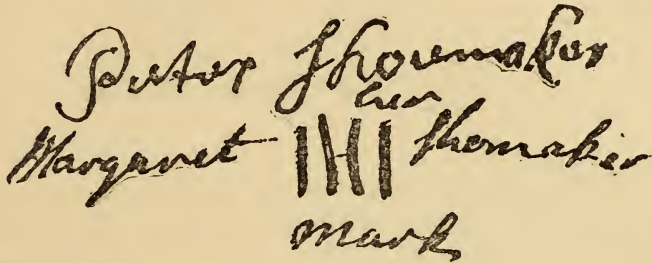 Peter Shoemaker
her
Margaret IHI Shemaker
mark